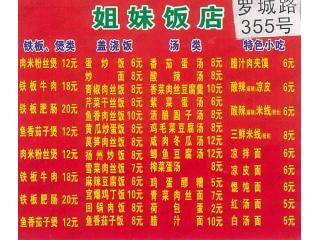 姐妹饭店
罗城路
355号
铁板、煲类
肉米粉丝煲 12元
铁板牛肉 18元
铁板肥肠 20元
鱼香茄子煲 12元
肉米粉丝煲 12元
铁板牛肉 18元
铁板肥肠 20元
鱼香茄子煲 12元
盖浇饭
蛋炒饭 6元
面 6元
青椒肉丝饭 8元
芹菜干丝饭 8元
鱼香肉丝饭 8元
黄瓜炒蛋饭 8元
莴笋肉丝饭 8元
扬州炒饭 8元
雪菜肉丝饭 8元
麻辣豆腐饭 6元
宫爆鸡丁饭 10元
回锅肉饭 8元
鱼香茄子饭 8元
汤类
番茄蛋汤 8元
酸辣汤 8元
香菜肉丝豆腐羹 10元
紫菜蛋汤 6元
酒酿圆子汤 8元
鸡毛菜豆腐汤 8元
咸肉冬瓜汤 12元
鲫鱼豆腐汤 12元
榨菜蛋汤 8元
鸡蛋 5元
青菜肉丝面 7元
荷包蛋 2元
腊汁肉 10元
特色小吃
腊汁肉夹馍 6元
酸辣凉皮 6元
酸辣米线 6元
三鲜米线 8元
凉拌面 6元
凉皮面 6元
馄饨面 6元
红汤面 5元
白汤面 5元